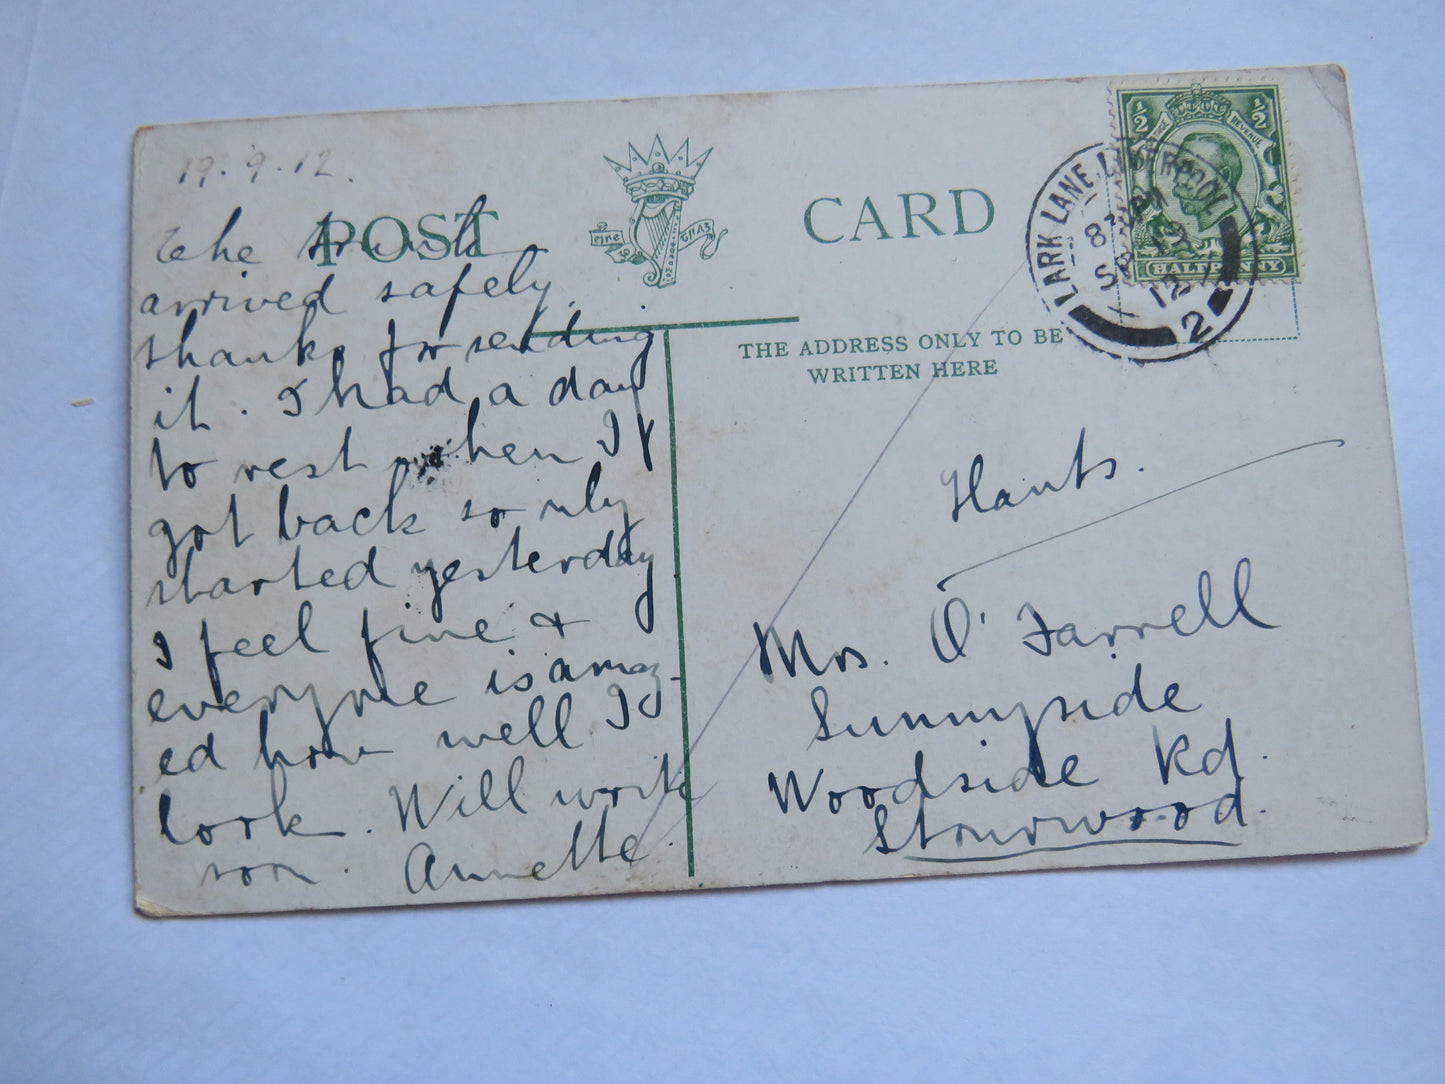 19.9.12.
POST CARD
The trunk
arrived safely,
thanks for sending
it. I had a day
to rest when I
got back so only
started yesterday
I feel fine &
everyone is amaz-
ed how well I
look. Will write
soon. Annette.
éire
THE ADDRESS ONLY TO BE
WRITTEN HERE
½ ½
POSTAGE REVENUE
HALFPENNY
LARK LANE. LIVERPOOL
8 30 PM
SP 19
12
2
Hants.
Mrs. O'Farrell
Sunnyside
Woodside Rd.
Stourwood.